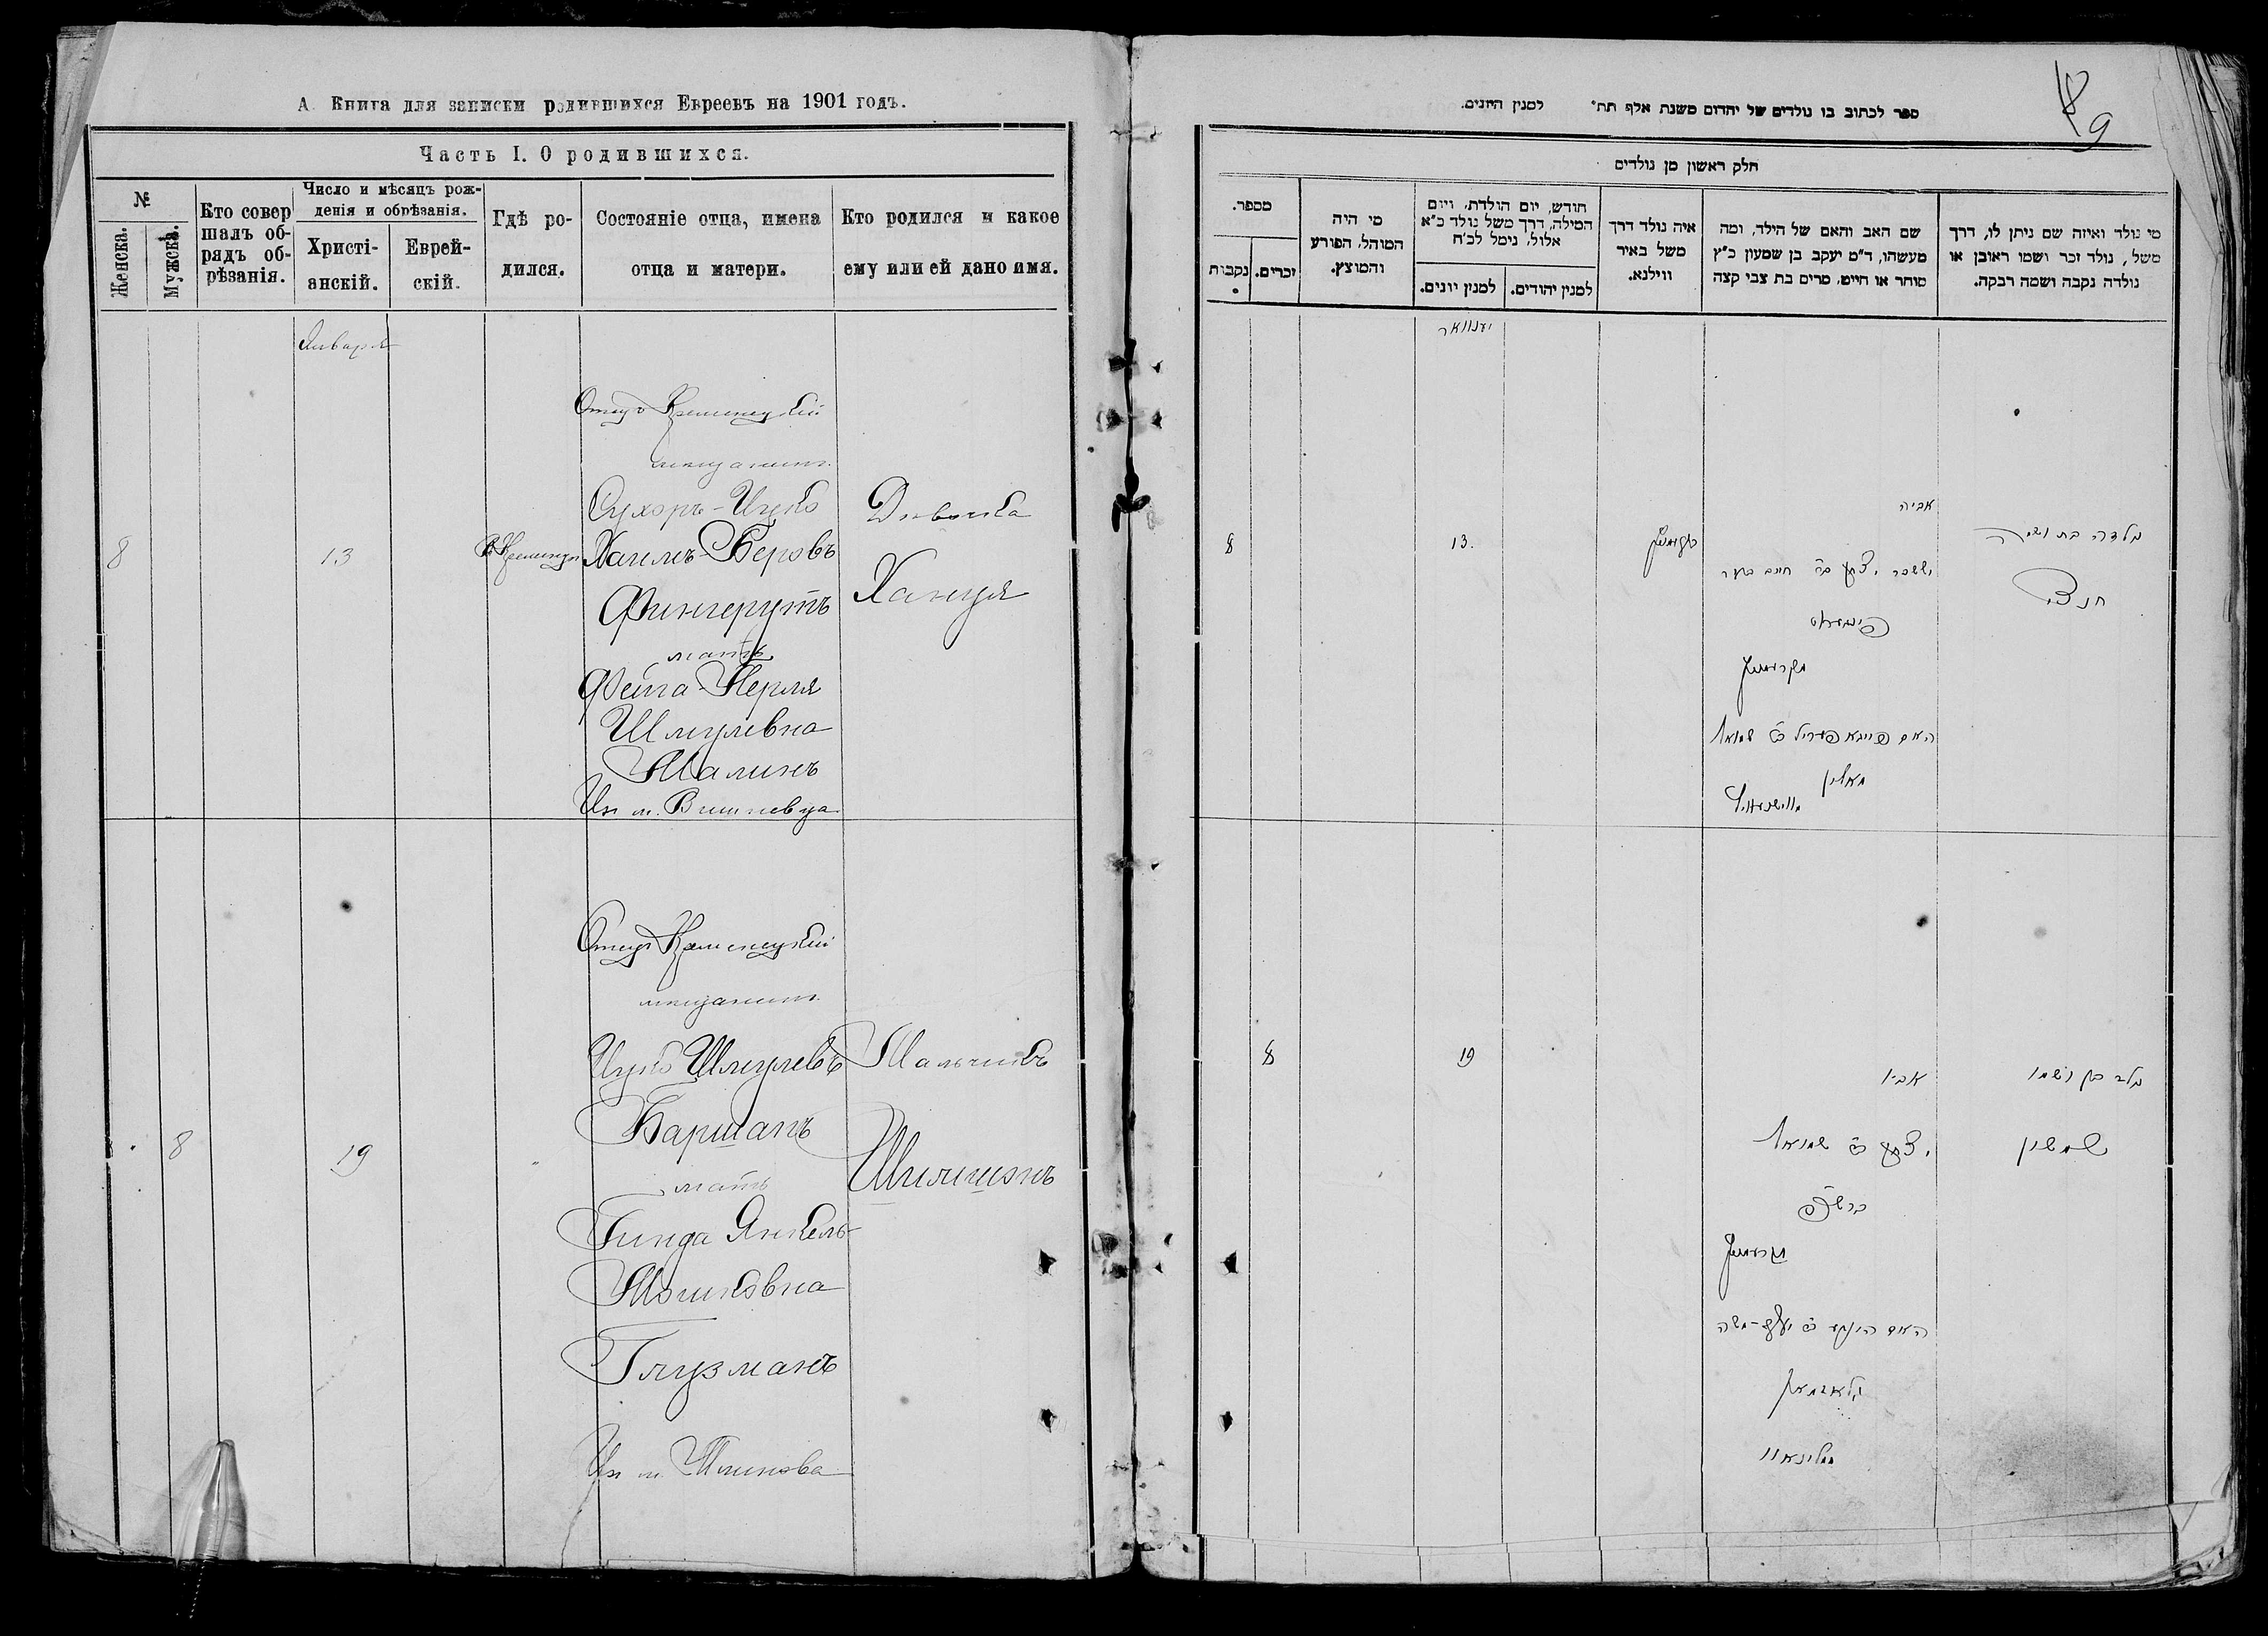 А. Книга для записки родившихся Евреевъ на 1901 годъ.
Часть I. О родившихся.
№
Женска.
Мужска.
Кто совер
шалъ об-
рядъ об-
рѣзанія.
Число и мѣсяцъ рож-
денія и обрѣзанія.
Христі-
анскій.
Еврей-
скій.
Гдѣ ро-
дился.
Состояніе отца, имена
отца и матери.
Кто родился и какое
ему или ей дано имя.
Января
8
13
Кременцѣ
Отецъ Кременецкій
мещанинъ
Сухоръ-Ицко
Хаимъ-Беровъ
Фингерутъ
мать
Фейга-Перля
Шмулевна
Малинъ
Из м. Вишневца
Дѣвочка
Ханця
8
19
"
Отецъ Кременецкій
мещанинъ
Ицко Шмулевъ
Баршапъ
мать
Гинда Янкель-
Мошковна
Глузманъ
Из м. Млинова
Мальчикъ
Шимшонъ
9
ספר לכתוב בו נולדים של יהדום משנת אלף תת״ למנין היונים.
חלק ראשון מן נולדים
מספר.
נקבות
זכרים.
מי היה
המוהל, הפורע
והמוצץ.
חודש, יום הולדת, ויום
המילה, דרך משל נולד כ״א
אלול, נימל לכ״ח
למנין יונים.
למנין יהודים.
איה נולד דרך
משל באיר
ווילנא.
שם האב והאם של הילד, ומה
מעשהו, ד״מ יעקב בן שמעון כ״ץ
סוחר או חייט, מרים בת צבי קצה
מי נולד ואיזה שם ניתן לו, דרך
משל, נולד זכר ושמו ראובן או
נולדה נקבה ושמה רבקה.
יענוואר
8
13.
אביה
יששכר יצחק ב״ח חיים בער
פינגערוט
מקרעמעניץ
האם פייגא פעריל ב״ר שמואל
מאלין
מווישנעוויץ
נולדה בת ושמה
חנצי
8
19
אביו
יצחק ב״ר שמואל
ברשפ
מקרעמעניץ
האם הינדע ב״ר יעקב-משה
גלאזמאן
ממלינאוו
נולד בן ושמו
שמשון